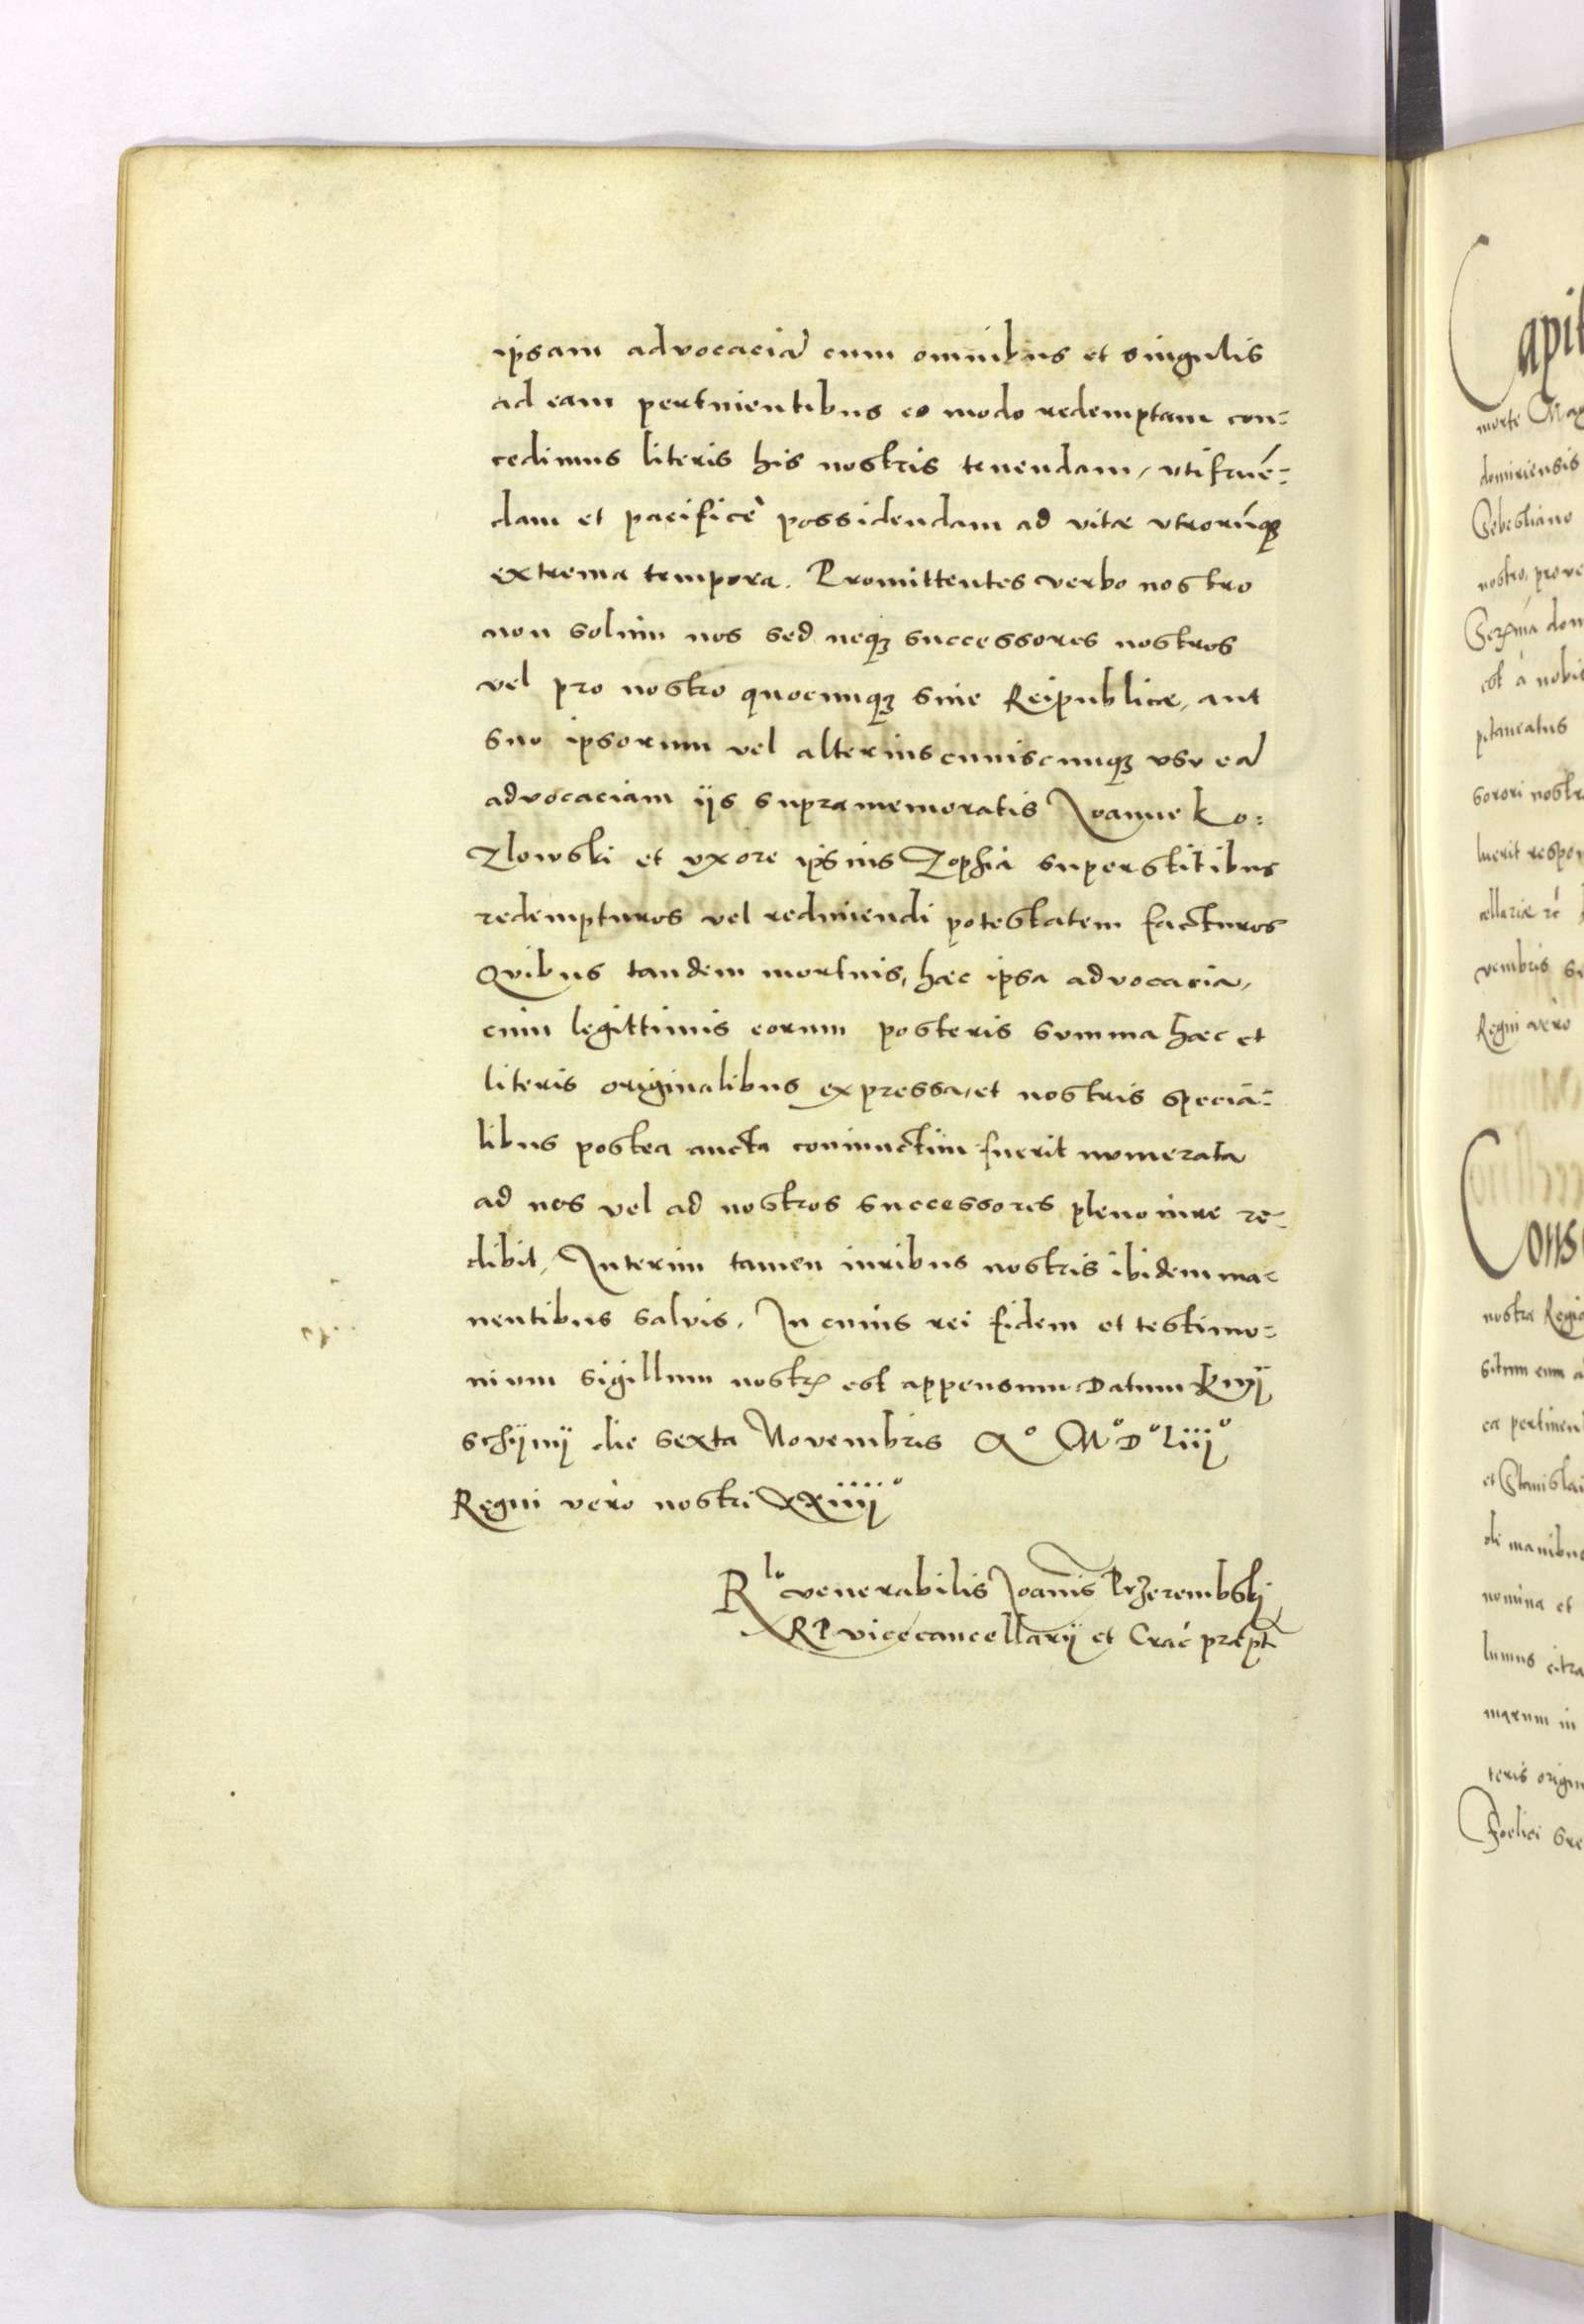 ipsam advocaciã cum omnibus et singulis
ad eam pertinentibus eo modo redemptam con=
cedimus literis his nostris tenendam, vtifruē=
dam et pacificè possidendam ad vitæ vtrorūqꝫ
extrema tempora. Promittentes verbo nostro
non solum nos sed neqꝫ successores nostros
vel pro nostro quocunqꝫ siue Reipublicæ, aut
suo ipsorum vel alterius cuiuscunqꝫ vsu eã
advocaciam ijs supramemoratis Joanne Ko=
zlowski et vxore ipsius Zophia superstitibus
redempturos vel redimendi potestatem facturos
Quibus tandem mortuis, hæc ipsa advocacia,
cum legittimis eorum posteris summa hæc et
literis originalibus expressa, et nostris specia=
libus postea aucta coniunctim fuerit numerata
ad nos vel ad nostros successores pleno iure re=
dibit, Interim tamen iuribus nostris ibidem ma=
nentibus salvis. In cuius rei fidem et testimo=
nium sigillum nostrꝫ est appensum Datum Knÿ
schÿnÿ die sexta Novembris Aº Mº Dº Liijº
Regni vero nostri xxiiijº
Rlo venerabilis Joannis Przerembskj
RP vicecancellarij et Crac præpt
Capit
morte
domiriensis
Sebestiano
nostro, prove
est à nobis
sorori nostr
luerit respon
vembris
Regni vero
Cons
nostra Regia
sitrum cum a
ea pertinen
et Stanislai
di manibus
nomina et
lumus citra
marum in
teris origin
Foelici